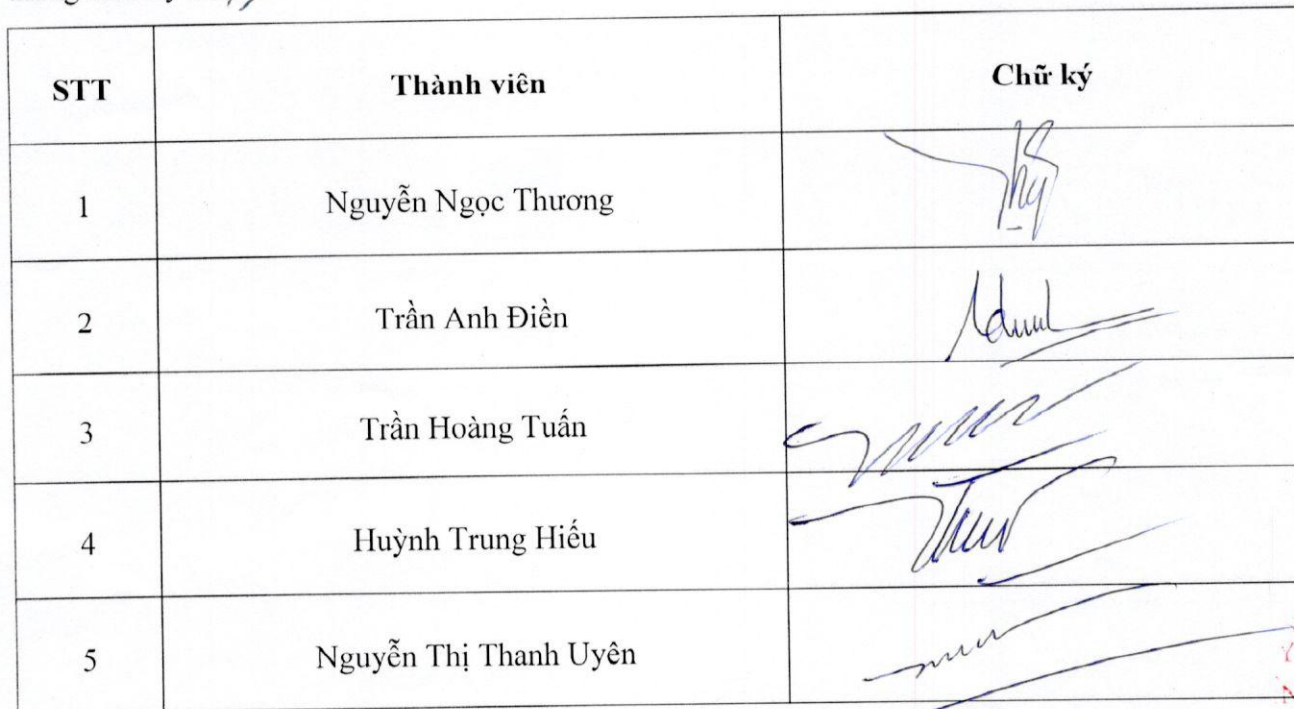 STT Thành viên Chữ ký
1 Nguyễn Ngọc Thương
2 Trần Anh Điền
3 Trần Hoàng Tuấn
4 Huỳnh Trung Hiếu
5 Nguyễn Thị Thanh Uyên